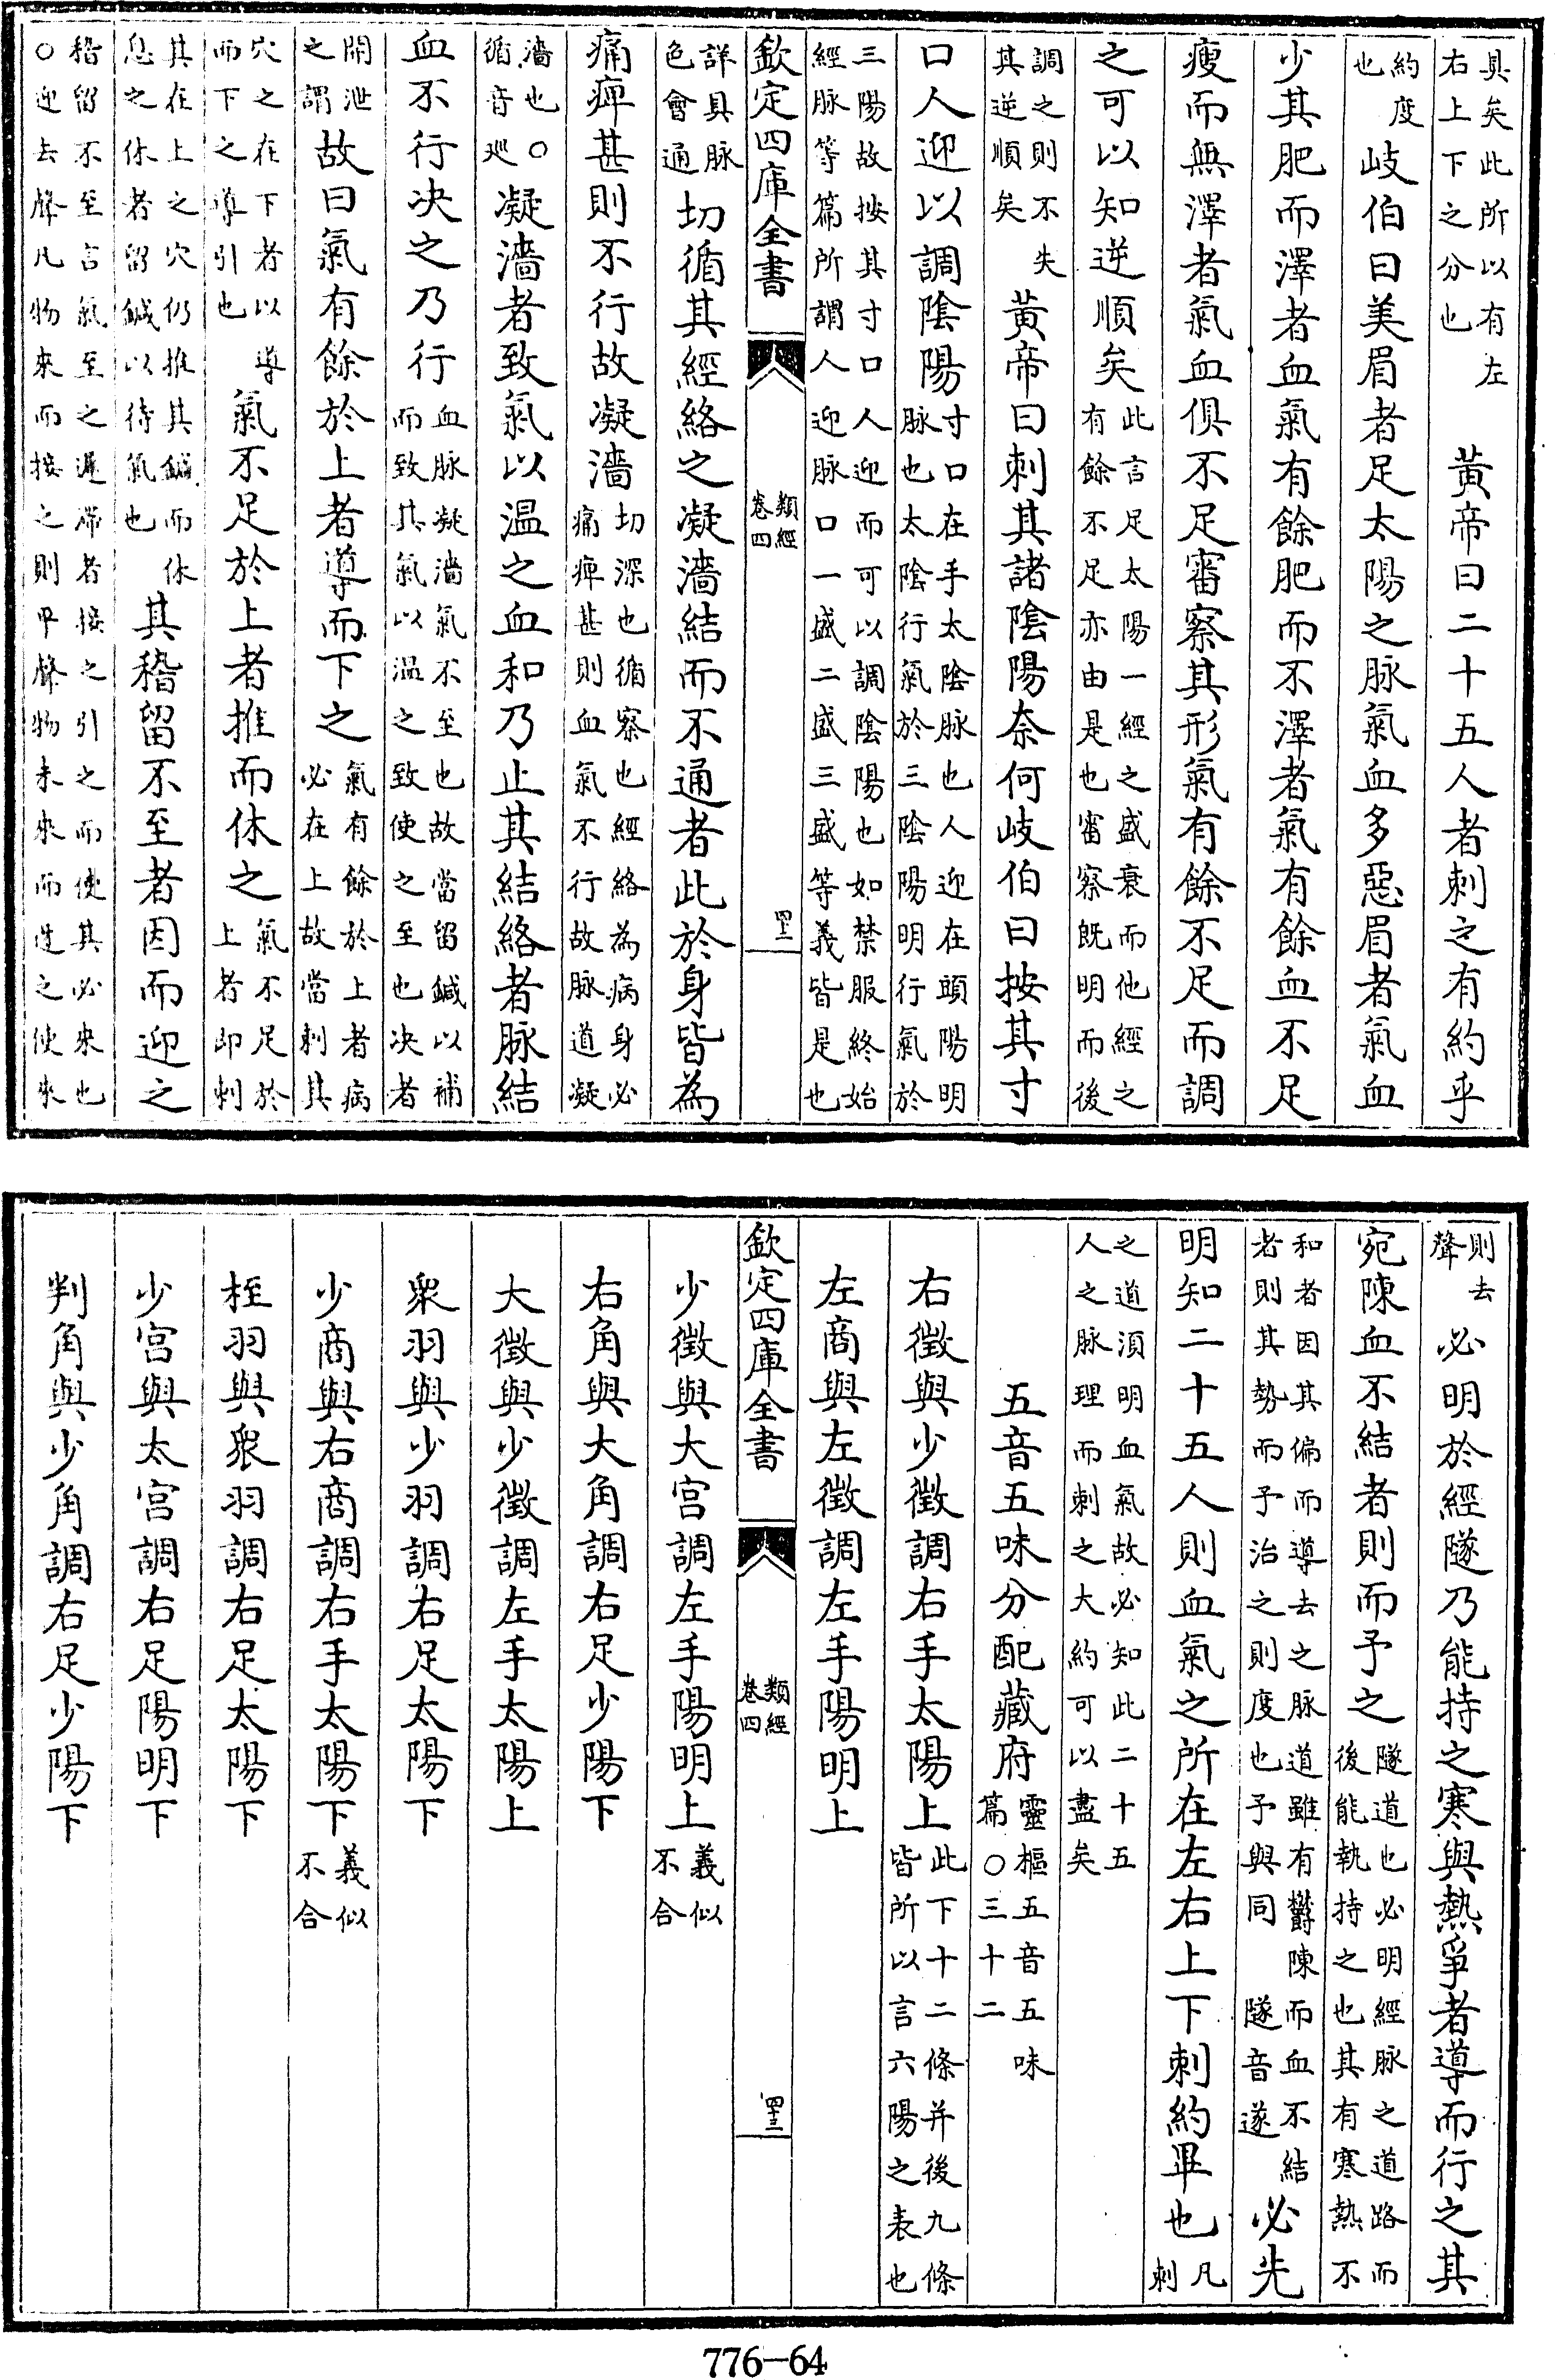 具矣此所以有左右上下之分也　黄帝曰二十五人者刺之有約乎
約度也岐伯曰美眉者足太陽之脉氣血多惡眉者氣血
少其肥而澤者血氣有餘肥而不澤者氣有餘血不足
瘦而無澤者氣血俱不足審察其形氣有餘不足而調
之可以知逆順矣此言足太陽一經之盛衰而他經之有餘不足亦由是也審察既明而後
調之則不失其逆順矣黄帝曰刺其諸陰陽奈何岐伯曰按其寸
口人迎以調陰陽寸口在手太陰脉也人迎在頭陽明脉也太陰行氣於三陰陽明行氣於
三陽故按其寸口人迎而可以調陰陽也如禁服終始經脉等篇所謂人迎脉口一盛二盛三盛等義皆是也
欽定四庫全書　類經卷四　四十三
詳具脉色會通切循其經絡之凝濇結而不通者此於身皆為
痛痺甚則不行故凝濇切深也循察也經絡為病身必痛痺甚則血氣不行故脉道凝
濇也○循音巡凝濇者致氣以温之血和乃止其結絡者脉結
血不行决之乃行血脉凝濇氣不至也故當留鍼以補而致其氣以温之致使之至也决者
開泄之謂故曰氣有餘於上者導而下之氣有餘於上者病必在上故當刺其
穴之在下者以導而下之導引也氣不足於上者推而休之氣不足於上者即刺
其在上之穴仍推其鍼而休息之休者留鍼以待氣也其稽留不至者因而迎之
稽留不至言氣至之遲滯者接之引之而使其必來也○迎去聲凡物來而接之則平聲物未來而迓之使來
則去聲必明於經隧乃能持之寒與熱爭者導而行之其
宛陳血不結者則而予之隧道也必明經脉之道路而後能執持之也其有寒熱不
和者因其偏而導去之脉道雖有鬱陳而血不結者則其勢而予治之則度也予與同　隧音遂必先
明知二十五人則血氣之所在左右上下刺約畢也凡刺
之道須明血氣故必知此二十五人之脉理而刺之大約可以盡矣
五音五味分配藏府靈樞五音五味篇○三十二
右徵與少徵調右手太陽上此下十二條并後九條皆所以言六陽之表也
左商與左徵調左手陽明上
欽定四庫全書　類經卷四　四十三
少徵與大宮調左手陽明上義似不合
右角與大角調右足少陽下
大徵與少徵調左手太陽上
衆羽與少羽調右足太陽下
少商與右商調右手太陽下義似不合
桎羽與衆羽調右足太陽下
少宮與太宮調右足陽明下
判角與少角調右足少陽下
776—64